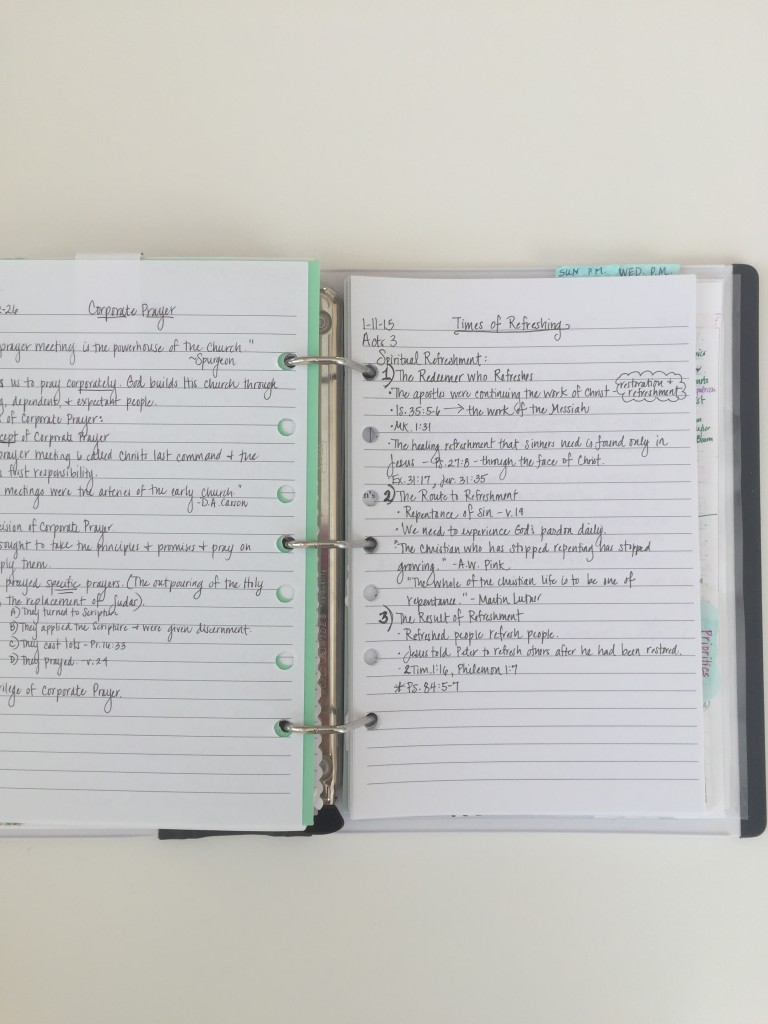 2-26 Corporate Prayer
prayer meeting is the powerhouse of the church"
~Spurgeon
s us to pray corporately. God builds His church through
g, dependent, + expectant people.
of Corporate Prayer:
cept of Corporate Prayer
prayer meeting is called Christ's last command + the
s first responsibility.
meetings were the arteries of the early church."
-D.A. Carson
ision of Corporate Prayer
sought to take the principles + promises + pray on
ply them.
prayed specific prayers. (The outpouring of the Holy
The replacement of Judas).
A) They turned to Scripture
B) They applied the Scripture + were given discernment.
C) They cast lots - Pr. 16:33
D) They prayed. -v. 24
ilege of Corporate Prayer.
SUN P.M. WED. P.M.
1-11-15 Times of Refreshing
Acts 3
Spiritual Refreshment:
1) The Redeemer who Refreshes
• The apostles were continuing the work of Christ - restoration + refreshment
• Is. 35:5-6 → the work of the Messiah
• Mk. 1:31
• The healing refreshment that sinners need is found only in
Jesus - Ps. 27:8 - through the face of Christ.
Ex. 31:17, Jer. 31:35
2) The Route to Refreshment
• Repentance of Sin - v. 19
• We need to experience God's pardon daily.
"The Christian who has stopped repenting has stopped
growing." -A.W. Pink
"The whole of the christian life is to be one of
repentance." - Martin Luther
3) The Result of Refreshment
• Refreshed people refresh people.
• Jesus told Peter to refresh others after he had been restored.
• 2 Tim. 1:16, Philemon 1:7
* Ps. 84:5-7
Priorities